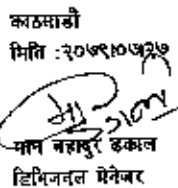 काठमाडौं
मिति :२०७९।०७।२७
मान बहादुर ढकाल
डिभिजनल मेनेजर